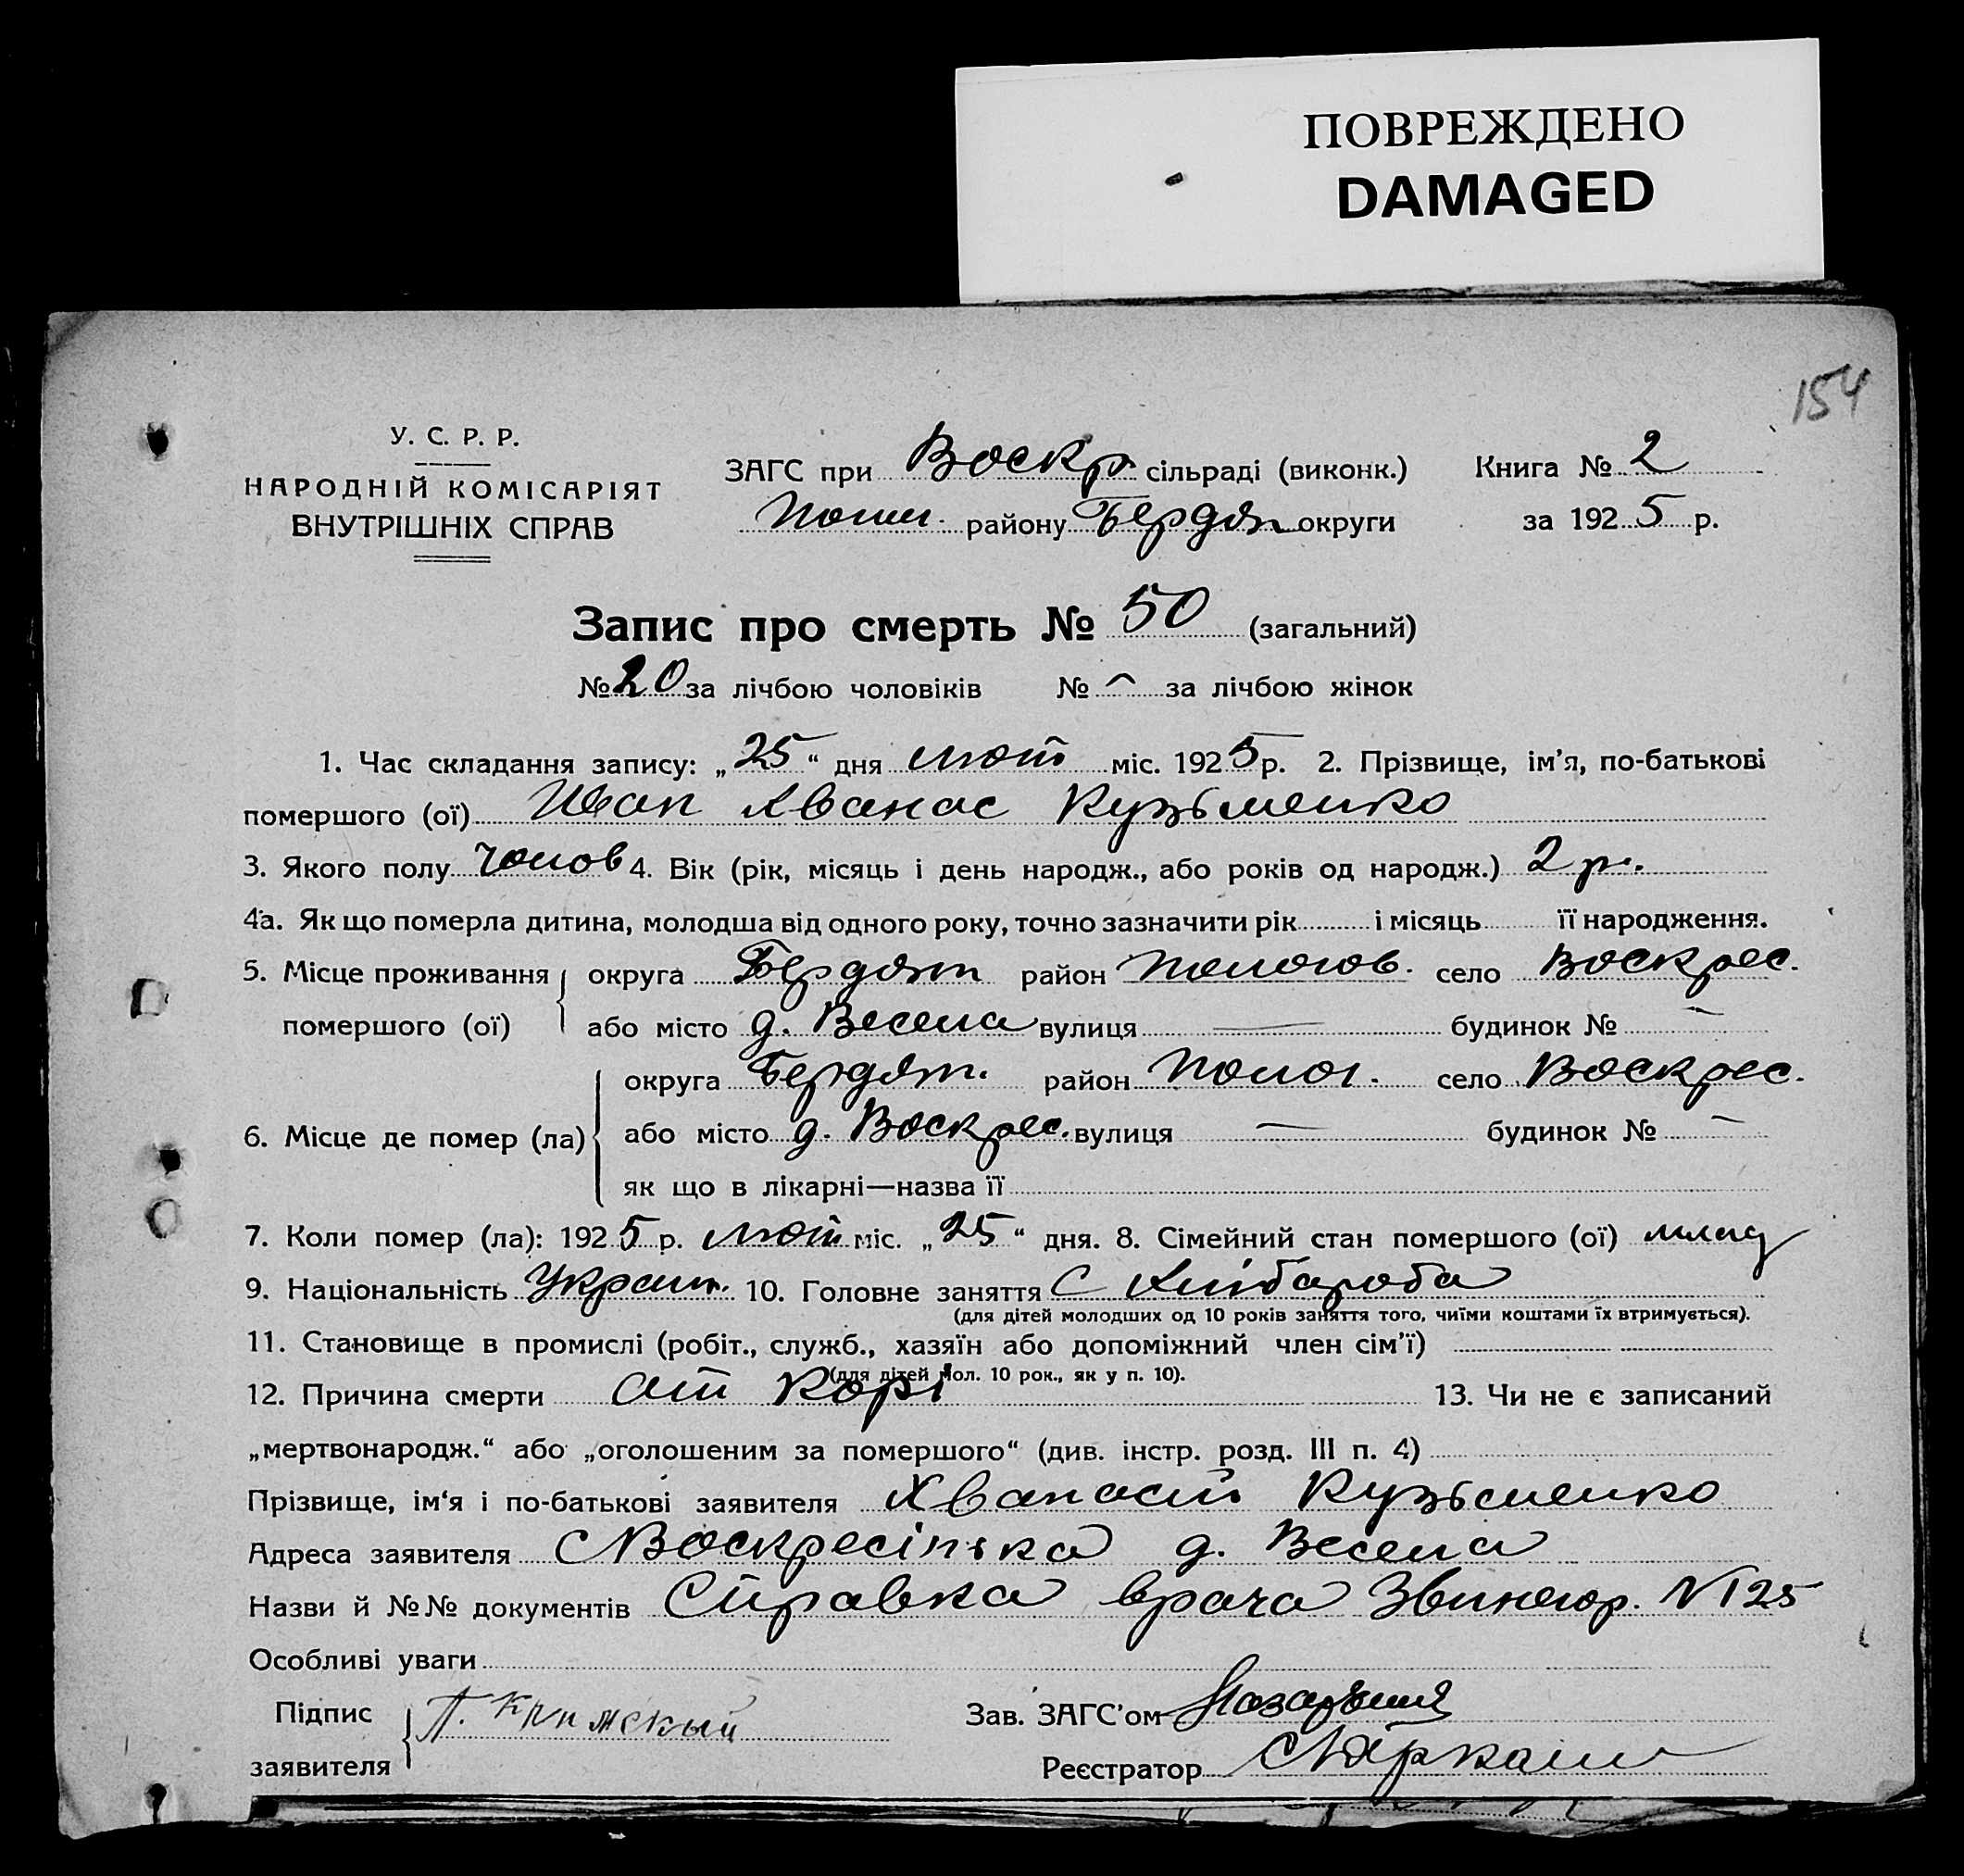 ПОВРЕЖДЕНО
DAMAGED
154
У. С. Р. Р.
НАРОДНІЙ КОМІСАРІЯТ
ВНУТРІШНІХ СПРАВ
ЗАГС при Воскр. сільраді (виконк.) Книга № 2
району Бердян округи за 1925 р.
Запис про смерть № 50 (загальний)
№ 20 за лічбою чоловіків № за лічбою жінок
1. Час складання запису: „25“ дня лют міс. 1925 р. 2. Прізвище, ім’я, по-батькові
помершого (ої) Иван Хванас Кузьменко
3. Якого полу чолов 4. Вік (рік, місяць і день народж., або років од народж.) 2 р.
4а. Як що померла дитина, молодша від одного року, точно зазначити рік і місяць її народження.
5. Місце проживання помершого (ої) округа Бердян район Пологов. село Воскрес.
або місто д. Весела вулиця — будинок № —
6. Місце де помер (ла) округа Бердян. район Полог. село Воскрес.
або місто д. Воскрес. вулиця — будинок № —
як що в лікарні—назва її
7. Коли помер (ла): 1925 р. лют міс. „25“ дня. 8. Сімейний стан помершого (ої) млад
9. Національність Украин. 10. Головне заняття С
(для дітей молодших од 10 років заняття того, чиїми коштами їх втримується).
11. Становище в промислі (робіт., служб., хазяїн або допоміжний член сім’ї)
(для дітей мол. 10 рок., як у п. 10).
12. Причина смерти от корі 13. Чи не є записаний
„мертвонародж.“ або „оголошеним за помершого“ (див. інстр. розд. III п. 4)
Прізвище, ім‘я і по-батькові заявителя Хванасій Кузьменко
Адреса заявителя с Воскресінька д. Весела
Назви й №№ документів Справка врача №125
Особливі уваги
Підпис заявителя
Зав. ЗАГС’ом
Реєстратор